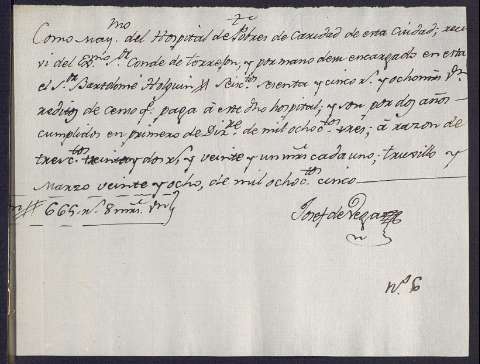 Como May.mo del Hospital de Pobres de Caridad de esta Ciudad; reci-
vi del Ex.mo S.or Conde de Torrejon, y por mano de su encargado en esta
el S.or Bartolome Holguin Seisc.tos sesenta y cinco r.s y ocho mrs v.n
reditos de censo q.e paga à este dho hospital; y son por dos años
cumplidos en primero de Diz.re de mil ochoc.tos tres; à razon de
tresc.tos treinta y dos r.s y veinte y un mrs cada uno; truxillo y
Marzo veinte y ocho, de mil ochoc.tos cinco
665 r.s 8 mrs v.n
Josef de Vega
N.o 6